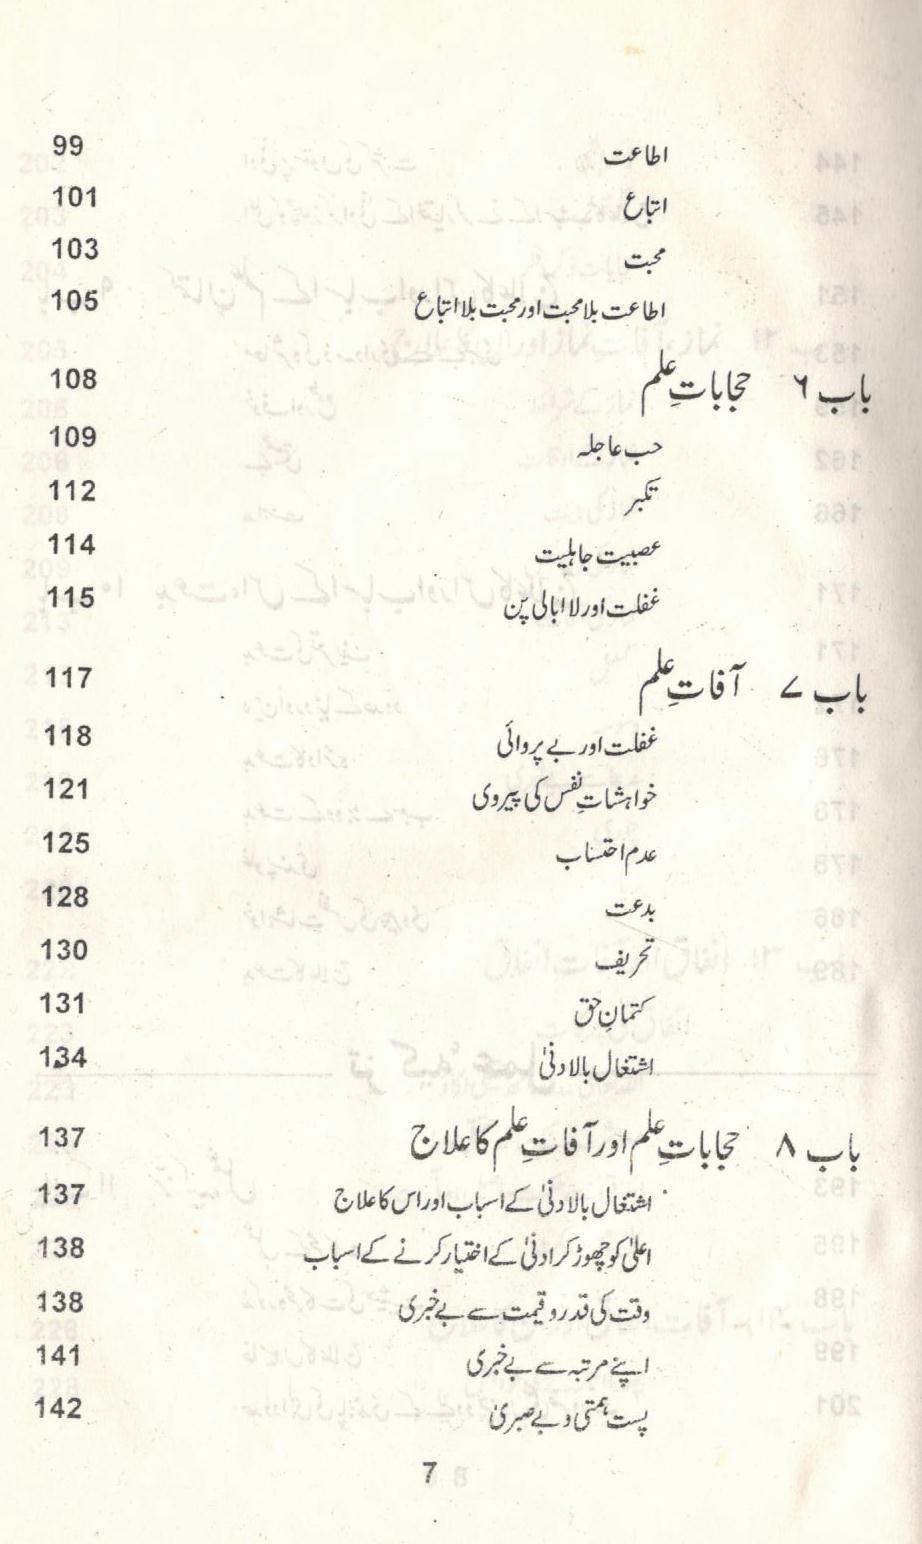 اطاعت 99
اتباع 101
محبت 103
اطاعت بلا محبت اور محبت بلا اتباع 105
باب ۶ حجاباتِ علم 108
حب عاجلہ 109
تکبر 112
عصبیت جاہلیت 114
غفلت اور لا ابالی پن 115
باب ۷ آفاتِ علم 117
غفلت اور بے پروائی 118
خواہشاتِ نفس کی پیروی 121
عدم احتساب 125
بدعت 128
تحریف 130
کتمانِ حق 131
اشتغال بالادنیٰ 134
باب ۸ حجاباتِ علم اور آفاتِ علم کا علاج 137
اشتغال بالادنیٰ کے اسباب اور اس کا علاج 137
اعلیٰ کو چھوڑ کر ادنیٰ کے اختیار کرنے کے اسباب 138
وقت کی قدر و قیمت سے بے خبری 138
اپنے مرتبہ سے بے خبری 141
پست ہمتی و بے صبریٰ 142
7